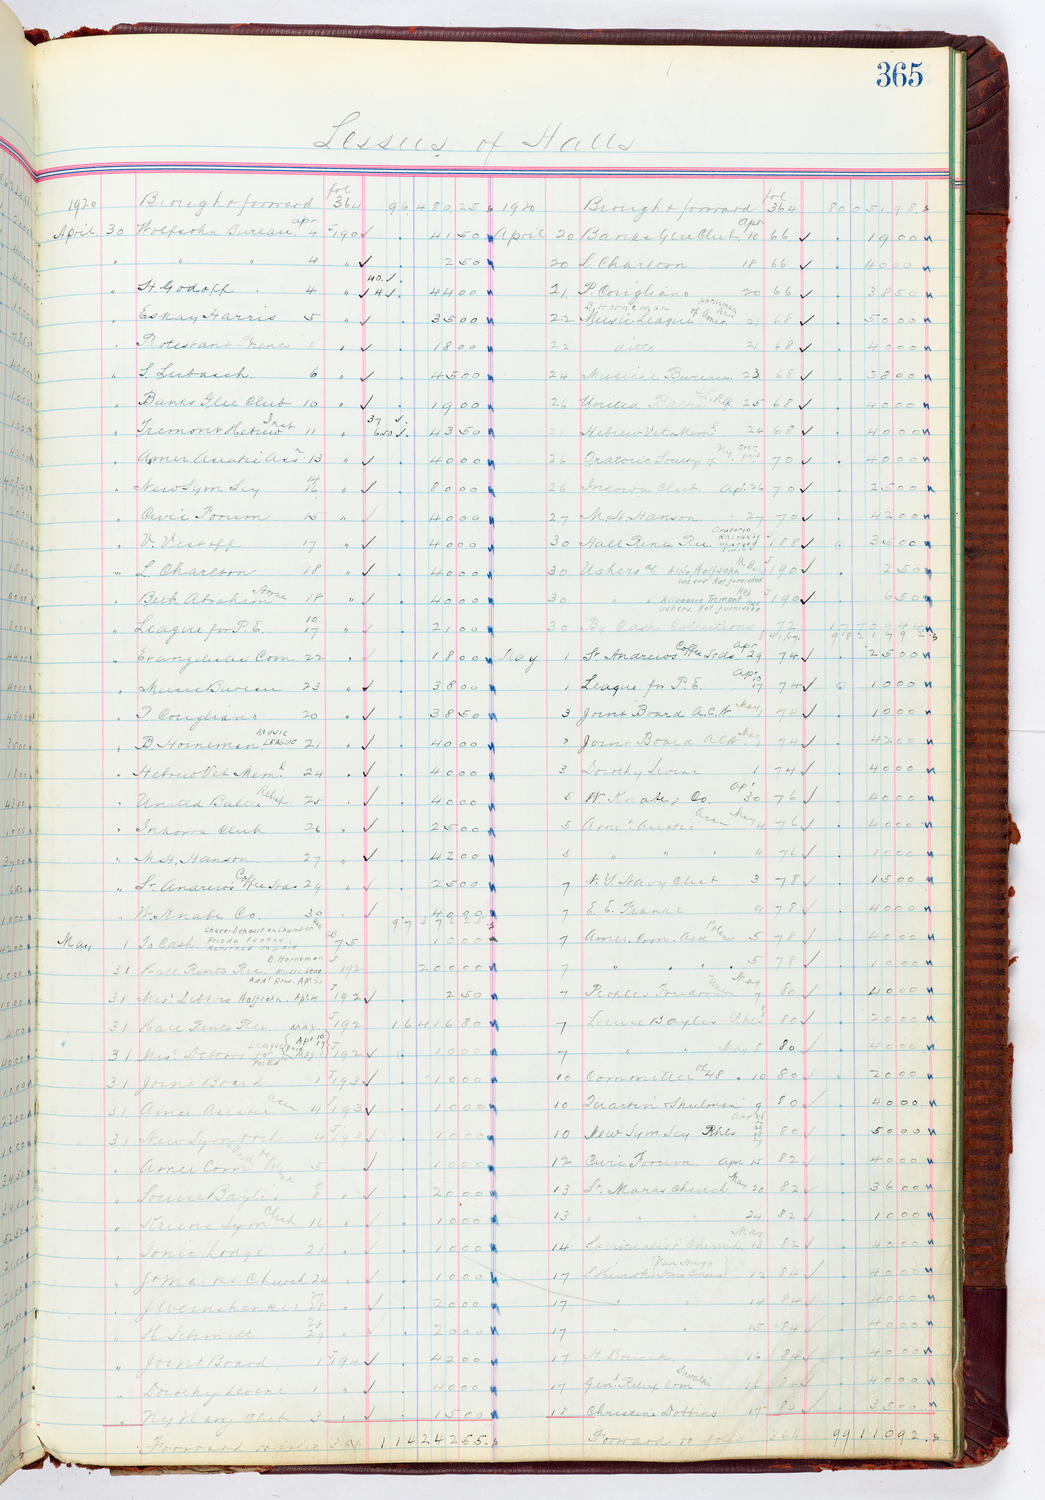 365
Lessees of Halls
1920 Brought forward fol 364 96,480.25
April 30 Wolfsohn Bureau Apr 4 J190 ✓ 41 50
" " " 4 " ✓ 2 50
" H. Godoff 4 " ✓ 40. ✓ 4 ✓ 44 00
" Eskay Harris 5 " ✓ 35 00
" Protestant Friends " ✓ 18 00
" S. Lubasch 6 " ✓ 45 00
" Banks Glee Club 10 " ✓ 19 00
" Tremont Hebrew Inst 11 " 37 ✓ 6.50 ✓ 43 50
" Amer. Asiatic Ass'n 13 " ✓ 40 00
" New Sym Scy 14 16 " ✓ 80 00
" Civic Forum 15 " ✓ 40 00
" V. Vestoff 17 " ✓ 40 00
" L. Charlton 18 " ✓ 40 00
" Beth Abraham Home 18 " ✓ 40 00
" League for P. E. 10 17 " ✓ 21 00
" Evangelistic Com 22 " ✓ 18 00
" Music Bureau 23 " ✓ 38 00
" P Corigliano 20 " ✓ 38 50
" B. Horneman Music League 21 " ✓ 40 00
" Hebrew Vet Mem'l 24 " ✓ 40 00
" United Baltic Relief 25 " ✓ 40 00
" Inkowa Club 26 " ✓ 25 00
" M. H. Hanson 27 " ✓ 42 00
" St. Andrew's Coffee Stds 29 " ✓ 25 00
" W. Knabe Co. 30 " ✓ 40 00
May 1 To Cash CB 75 10 00
31 Hall Rents Rec. B. Horneman Music Leag Add'l Rent. Ap. 21 J192 200 00
31 Misc Debtors Wolfsohn. Ap. 4 J192 ✓ 2 50
31 Hall Rents Rec. May. J192 16416 80
31 Misc Debtors League for Pol Ed Apr 10 17 May 1 J192 ✓ 10 00
31 Joint Board 1 J193 ✓ 10 00
31 Amer Asiatic Assn 4 J193 ✓ 10 00
31 New Sym Orch 4 J193 ✓ 10 00
" Amer Com 5 ✓ 10 00
" Louise Baylis 8 " ✓ 20 00
" Kriens Sym Club 16 " ✓ 10 00
" Ionic Lodge 21 " ✓ 10 00
" St Marks Church 24 " ✓ 10 00
" J Weinshenker 28 " ✓ 20 00
" H. Schmitt 28 29 " ✓ 20 00
" Joint Board 1 J194 ✓ 42 00
" Dorothy Levene 1 " ✓ 40 00
" Ny Navy Club 3 " ✓ 15 00
Forward to folio 366 114242 55
1920 Brought forward fol 364 80051.98
April 20 Banks Glee Club Apr 10 66 ✓ 19 00
20 L. Charlton 18 66 ✓ 40 00
21 P. Corigliano 20 66 ✓ 38 50
22 B. Horneman Music League of Amer 21 68 ✓ 50 00
22 ditto 21 68 ✓ 40 00
24 Musical Bureau 23 68 ✓ 38 00
26 United Baltic Rel. 25 68 ✓ 40 00
26 Hebrew Vet. Mem'l 24 68 ✓ 40 00
26 Oratorio Society of Ny. 70 ✓ 40 00
26 Inkowa Club Ap. 26 70 ✓ 25 00
27 M. H. Hanson 27 70 ✓ 42 00
30 Hall Rents Rec. Oratorio Rhlsl J188 ✓ 36 00
30 Ushers a/c Wolfsohn M. Bu where Not furnished J190 ✓ 2 50
30 " " Allowance Tremont Heb Inst ushers. Not furnished J190 ✓ 6 50
30 By Cash Collections 72 17709 44
May 1 St. Andrew's Coffee Stds Apr 29 74 ✓ 25 00
1 League for P. E. Apr 10 17 74 ✓ 10 00
3 Joint Board A.C.W. May 1 74 ✓ 10 00
3 Joint Board A.C.W. May 1 74 ✓ 42 00
3 Dorothy Levene 1 74 ✓ 40 00
5 W. Knabe, Co. Ap' 30 76 ✓ 40 00
5 Amer Asiatic Assn May 4 76 ✓ 40 00
5 " " " " 76 ✓ 10 00
7 N.Y. Navy Club 3 78 ✓ 15 00
7 E. E. Franke 9 78 ✓ 40 00
7 Amer. Com. Aid Poland 5 78 ✓ 40 00
7 " " " 5 78 ✓ 10 00
7 Peoples Foundation May 7 80 ✓ 40 00
7 Louise Baylis Rhls 8 80 ✓ 20 00
7 " " May 8 80 ✓ 40 00
10 Committee of 48 10 80 ✓ 20 00
10 Quartin & Shulman 9 80 ✓ 40 00
10 New Sym Scy Rhls 80 ✓ 50 00
12 Civic Forum Apr 15 82 ✓ 40 00
13 St. Marks Church May 20 82 ✓ 36 00
13 " " " 24 82 ✓ 10 00
14 Spiritualist Church May 13 82 ✓ 40 00
17 12 84 ✓ 40 00
17 " " 14 84 ✓ 40 00
17 " " 15 84 ✓ 40 00
17 16 84 ✓ 40 00
17 Gen'l Relief Com 16 84 ✓ 40 00
18 Christine Dobbins 17 84 ✓ 35 00
Forward to folio 366 99110 92